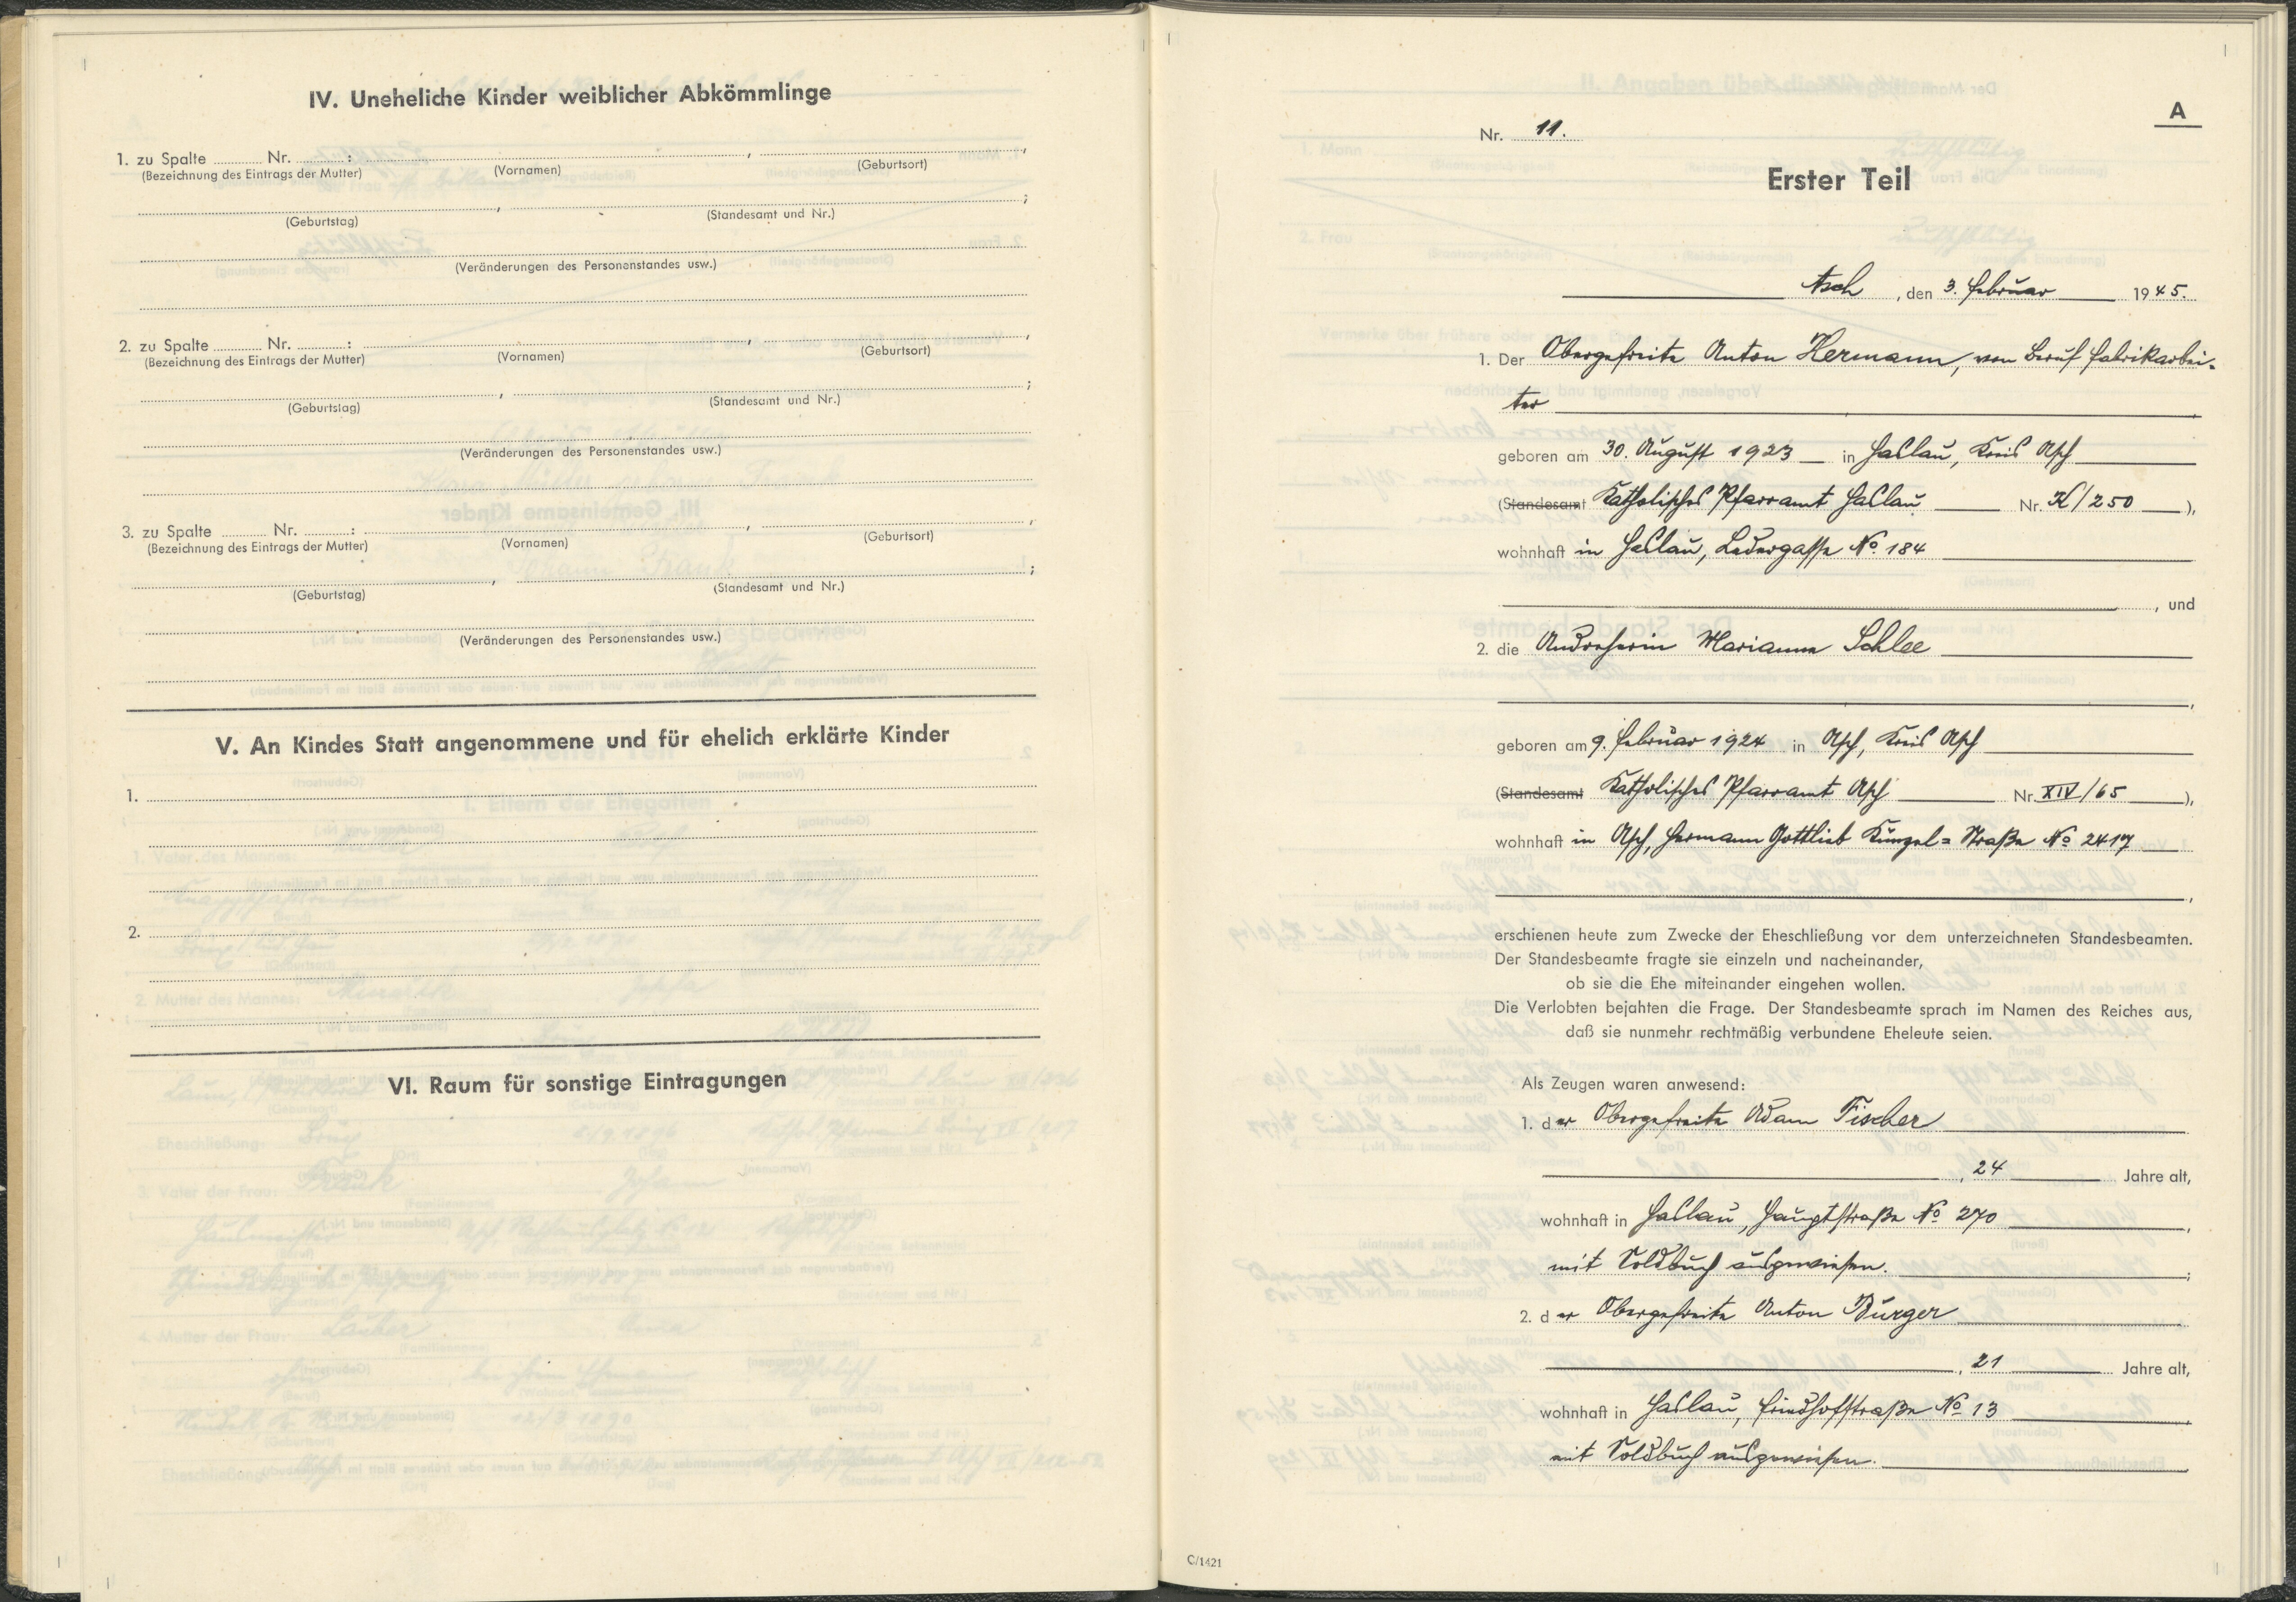 IV. Uneheliche Kinder weiblicher Abkömmlinge
1. zu Spalte Nr. : , ,
(Bezeichnung des Eintrags der Mutter) (Vornamen) (Geburtsort)
, ;
(Geburtstag) (Standesamt und Nr.)
(Veränderungen des Personenstandes usw.)
2. zu Spalte Nr. : , ,
(Bezeichnung des Eintrags der Mutter) (Vornamen) (Geburtsort)
, ;
(Geburtstag) (Standesamt und Nr.)
(Veränderungen des Personenstandes usw.)
3. zu Spalte Nr. : , ,
(Bezeichnung des Eintrags der Mutter) (Vornamen) (Geburtsort)
, ;
(Geburtstag) (Standesamt und Nr.)
(Veränderungen des Personenstandes usw.)
V. An Kindes Statt angenommene und für ehelich erklärte Kinder
1.
2.
VI. Raum für sonstige Eintragungen
A
Nr. 11.
Erster Teil
Asch, den 3. Februar 1945.
1. Der Obergefreite Anton Hermann, von Beruf Fabrikarbei-
ter
geboren am 30. August 1923 in Haslau, Kreis Asch
(Standesamt Katholisches Pfarramt Haslau Nr. X/250),
wohnhaft in Haslau, Ledergasse No 184
, und
2. die Andreherin Marianne Schlee
,
geboren am 9. Februar 1924 in Asch, Kreis Asch
(Standesamt Katholisches Pfarramt Asch Nr. XIV/65),
wohnhaft in Asch, Hermann Gottlieb Künzel=Straße No 2417
,
erschienen heute zum Zwecke der Eheschließung vor dem unterzeichneten Standesbeamten.
Der Standesbeamte fragte sie einzeln und nacheinander,
ob sie die Ehe miteinander eingehen wollen.
Die Verlobten bejahten die Frage. Der Standesbeamte sprach im Namen des Reiches aus,
daß sie nunmehr rechtmäßig verbundene Eheleute seien.
Als Zeugen waren anwesend:
1. der Obergefreite Adam Fischer
, 24 Jahre alt,
wohnhaft in Haslau, Hauptstraße No 270,
mit Soldbuch ausgewiesen. ;
2. der Obergefreite Anton Bürger
, 21 Jahre alt,
wohnhaft in Haslau, Friedhofstraße No 13,
mit Soldbuch ausgewiesen.
C/1421